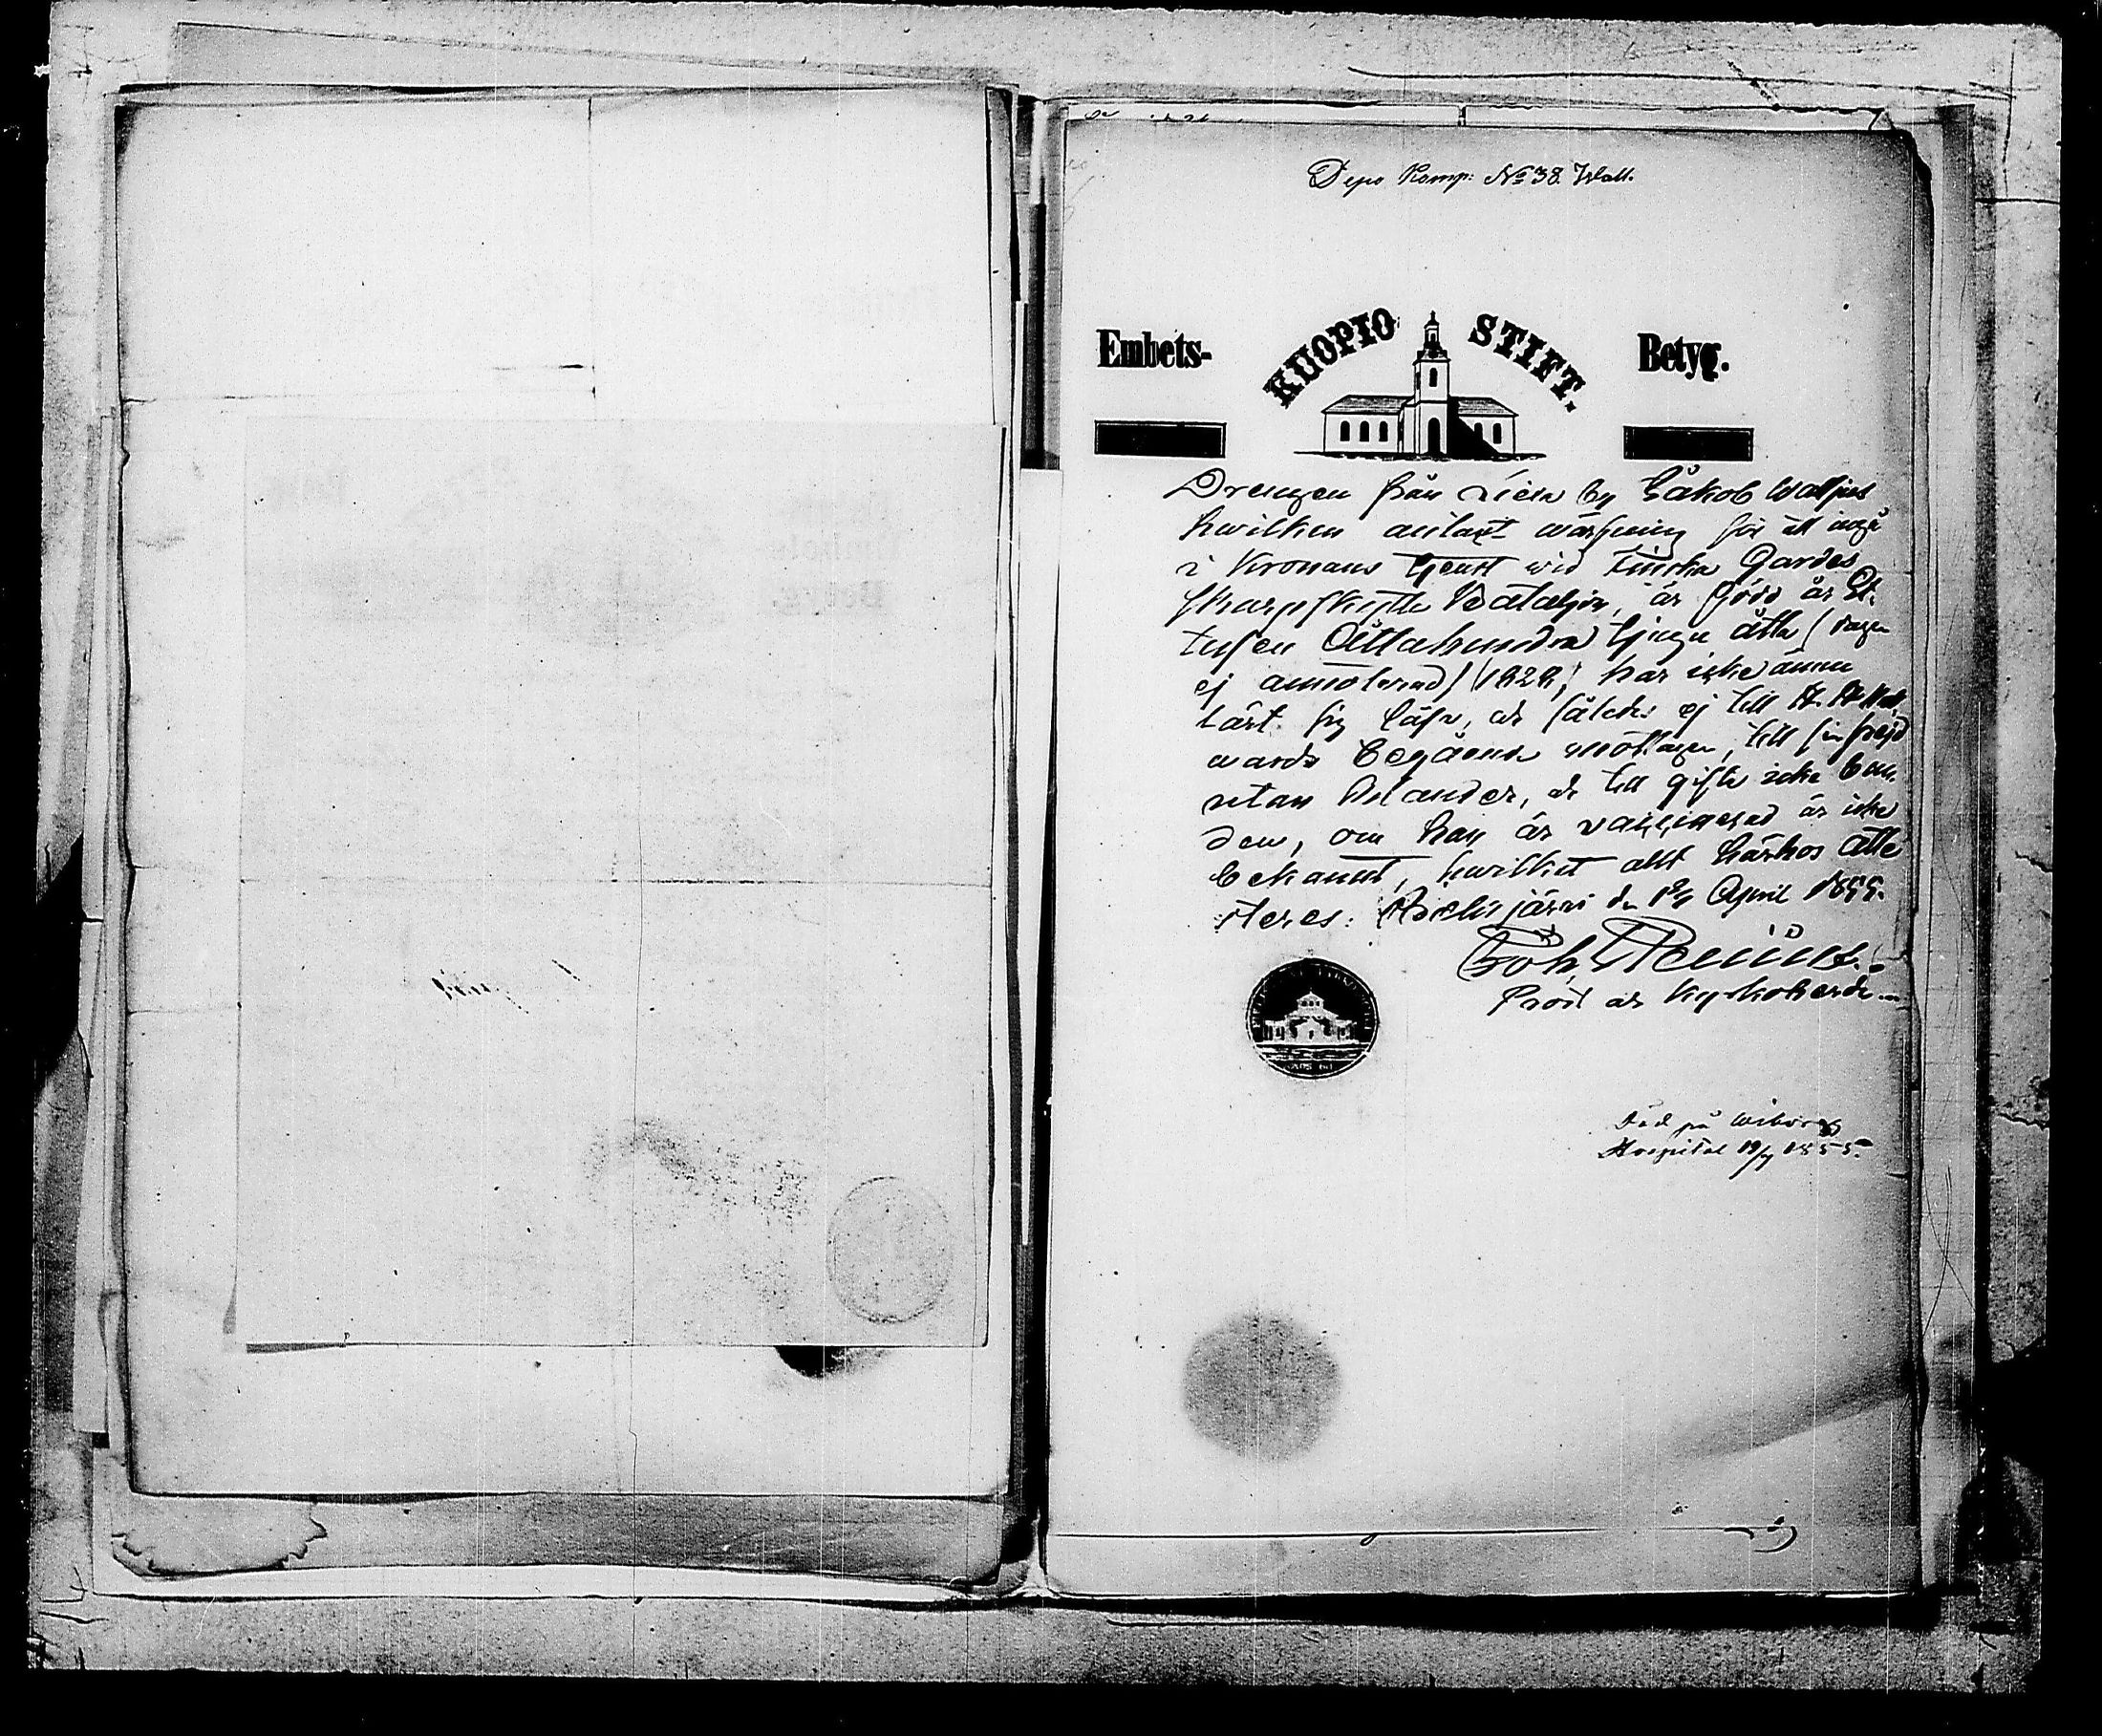 Depo Komp: No 38. Wall.
Embets- KUOPIO STIFT. Betyg.
Drengen från Liexa by Jakob Walljus
hwilken antagit wärfning för att ingå
i Kronans tjenst wid Finska Gardes
skarpskytte Bataljon, är född år Et
tusen Åttahundra tjugu åtta (dagen
ej annoterad) (1828), har icke ännu
lärt sig läsa, och således ej till H. H. Natt
wards begående mottagen, till sin frejd
utan klander, och till gifte icke bun
den, om han är vaccinerad är icke
bekannt, hwilket allt härhos atte
steres: Pielisjärvi den April 1855.
Joh.
Prost och Kyrkoherde
Död på Wiborgs
Hospital 19/7 1855.